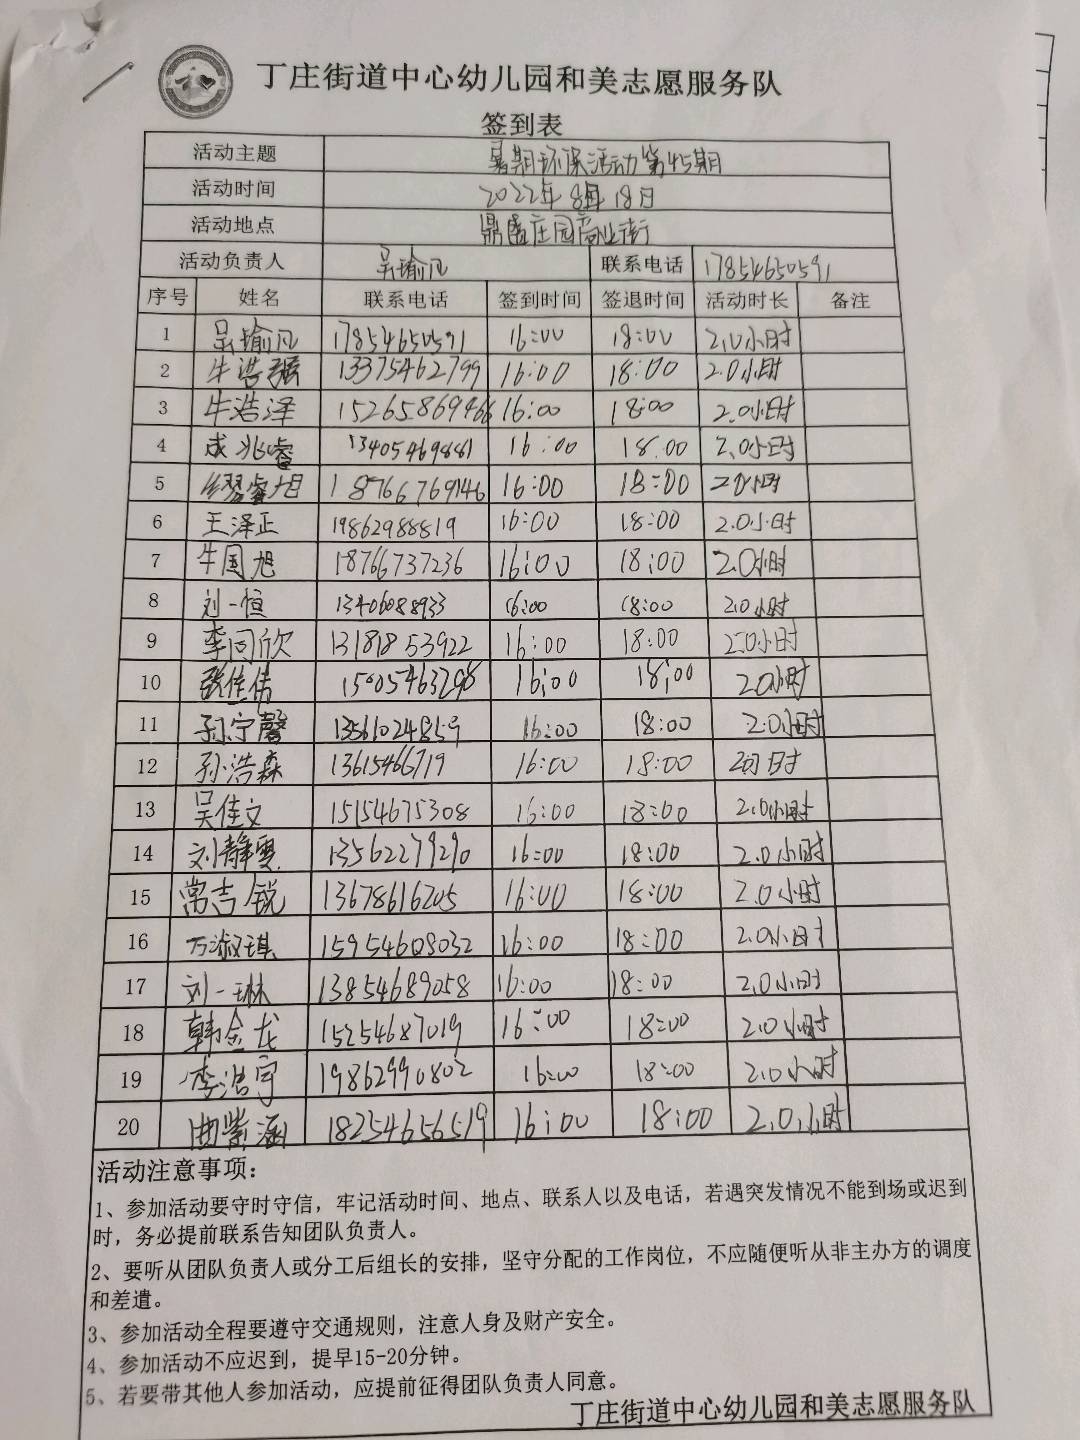 丁庄街道中心幼儿园和美志愿服务队
签到表
活动主题 暑期环保活动第45期
活动时间 2022年8月18日
活动地点 鼎盛庄园商业街
活动负责人 吴瑜凡 联系电话 17854650591
序号 姓名 联系电话 签到时间 签退时间 活动时长 备注
1 吴瑜凡 17854650591 16:00 18:00 2.0小时
2 牛浩强 13375462799 16:00 18:00 2.0小时
3 牛浩泽 15265869466 16:00 18:00 2.0小时
4 成兆睿 13405469881 16:00 18:00 2.0小时
5 缪睿旭 18766769146 16:00 18:00 2.0小时
6 王泽正 19862988819 16:00 18:00 2.0小时
7 牛国旭 18766737236 16:00 18:00 2.0小时
8 刘一恒 13406088933 16:00 18:00 2.0小时
9 李同欣 13181853922 16:00 18:00 2.0小时
10 张佳倩 15005463298 16:00 18:00 2.0小时
11 孙宁馨 13561024859 16:00 18:00 2.0小时
12 孙浩森 13615466719 16:00 18:00
13 吴佳文 15154675308 16:00 18:00 2.0小时
14 刘静雯 13562279290 16:00 18:00 2.0小时
15 常吉锐 13678616205 16:00 18:00 2.0小时
16 万淑琪 15954608032 16:00 18:00 2.0小时
17 刘一琳 13854689058 16:00 18:00 2.0小时
18 韩金龙 15254687019 16:00 18:00 2.0小时
19 李浩宇 19862990802 16:00 18:00 2.0小时
20 曲紫涵 18254656519 16:00 18:00 2.0小时
活动注意事项：
1、参加活动要守时守信，牢记活动时间、地点、联系人以及电话，若遇突发情况不能到场或迟到
时，务必提前联系告知团队负责人。
2、要听从团队负责人或分工后组长的安排，坚守分配的工作岗位，不应随便听从非主办方的调度
和差遣。
3、参加活动全程要遵守交通规则，注意人身及财产安全。
4、参加活动不应迟到，提早15-20分钟。
5、若要带其他人参加活动，应提前征得团队负责人同意。
丁庄街道中心幼儿园和美志愿服务队